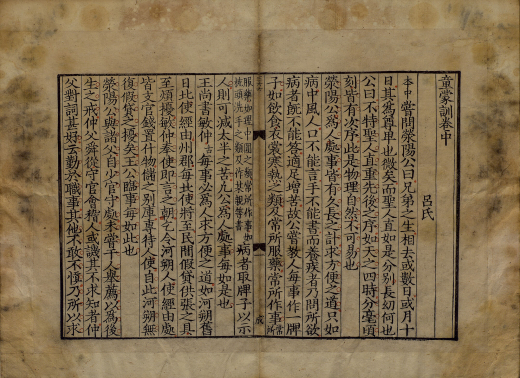 童蒙訓卷中
呂氏
本中嘗問滎陽公曰兄弟之生相去或數日或月十
日其為尊卑也微矣而聖人直如是分別長幼何也
公曰不特聖人直重先後之序如天之四時分毫頃
刻皆有次序此是物理自然不可易也
滎陽公為人處事皆有久長之計求方便之道只如
病中風人口不能言手不能書而養疾者乃問所欲
病者旣不能答適足增苦故公嘗教人每事作一牌
子如飲食衣裳寒熱之類及常所服藥常所作事常所
服藥如理中圓之類常所作事如梳頭洗手之類及作某親等書病者取牌子以示
人則可減大半之苦凡公為人處事每如是也
王尚書敏仲古每事必為人求方便之道如河朔舊
日北使經由州郡每北使將至民間假貸供張之具
至煩擾敏仲奉使即言之朝乞令河朔人使經由處
皆支官錢置什物儲之別庫專待人使自此河朔無
復假貸之擾矣王公臨事每如此也
滎陽公與諸父自少官守處未嘗干人舉薦以為後
生之戒仲父舜從守官會稽人或譏其不求知者仲
父對詞甚好云勤於職事其他不敢不慎乃所以求